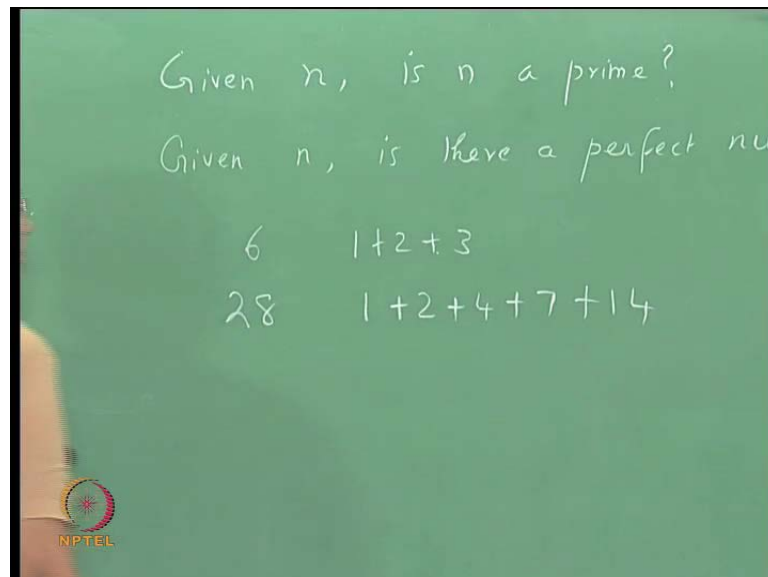 Given n, is n a prime?
Given n, is there a perfect nu
6 1+2+3
28 1+2+4+7+14
NPTEL